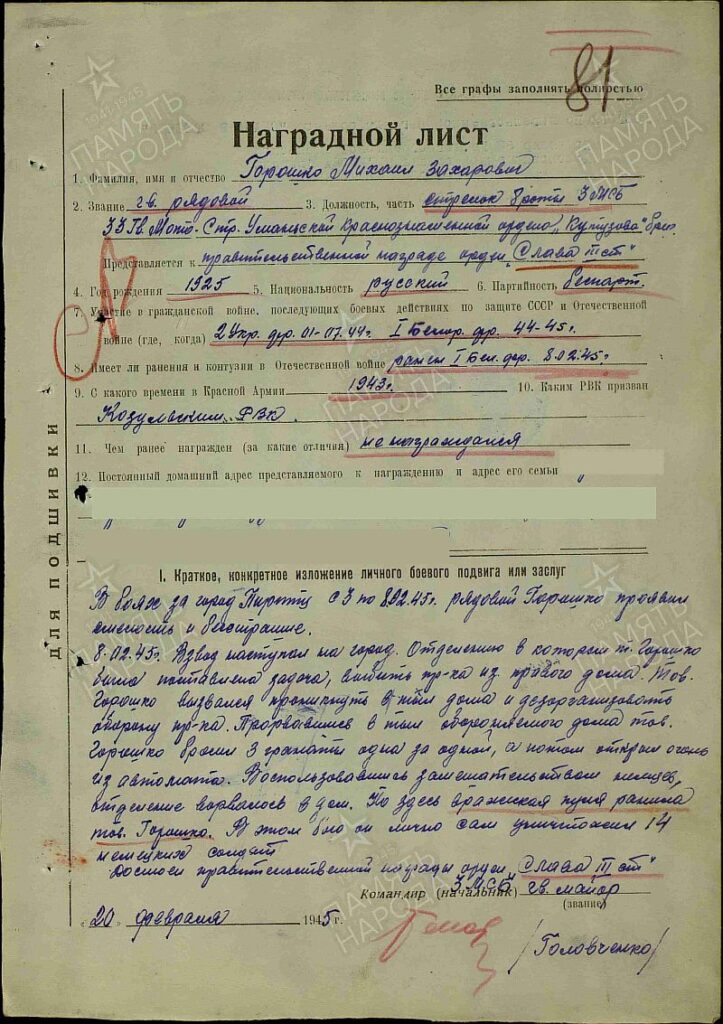 81
Все графы заполнять полностью
Наградной лист
1. Фамилия, имя и отчество Горошко Михаил Захарович
2. Звание гв. рядовой 3. Должность, часть стрелок роты 3 МСБ
33 Гв. Мото-Стр. Уманьской Краснознаменной ордена „Кутузова" бриг.
Представляется к правительственной награде орден „Слава III ст"
4. Год рождения 1925 5. Национальность русский 6. Партийность беспарт.
7. Участие в гражданской войне, последующих боевых действиях по защите СССР и Отечественной
войне (где, когда) 2 Укр. фр. 01-07.44г. I Белор. фр. 44-45г.
8. Имеет ли ранения и контузии в Отечественной войне ранен I Бел. фр. 8.02.45г.
9. С какого времени в Красной Армии 1943г. 10. Каким РВК призван
Козульским РВК.
11. Чем ранее награжден (за какие отличия) не награждался
12. Постоянный домашний адрес представляемого к награждению и адрес его семьи
ДЛЯ ПОДШИВКИ
I. Краткое, конкретное изложение личного боевого подвига или заслуг
В боях за город с 3 по 8.02.45г. рядовой Горошко проявил
смелость и бесстрашие.
8.02.45г. Взвод наступал на город. Отделению в котором т. Горошко
была поставлена задача, выбить пр-ка из правого дома. Тов.
Горошко вызвался проникнуть в тыл дома и дезорганизовать
оборону пр-ка. Прорвавшись в тыл обороняемого дома тов.
Горошко бросил 3 гранаты одна за одной, а потом открыл огонь
из автомата. Воспользовавшись замешательством немцев,
отделение ворвалось в дом. Но здесь вражеская пуля ранила
тов. Горошко. В этом бою он лично сам уничтожил 14
немецких солдат
Достоин правительственной награды орден „Слава III ст"
Командир (начальник) 3 МСБ гв. майор
(звание)
20 февраля 1945 г.
/Головченко/
ПАМЯТЬ НАРОДА
1941-1945